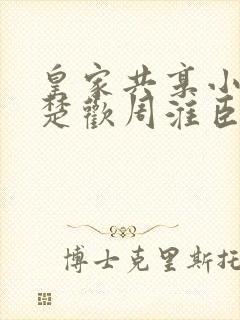 皇家共享小
楚歡周淮臣
博士克里斯托